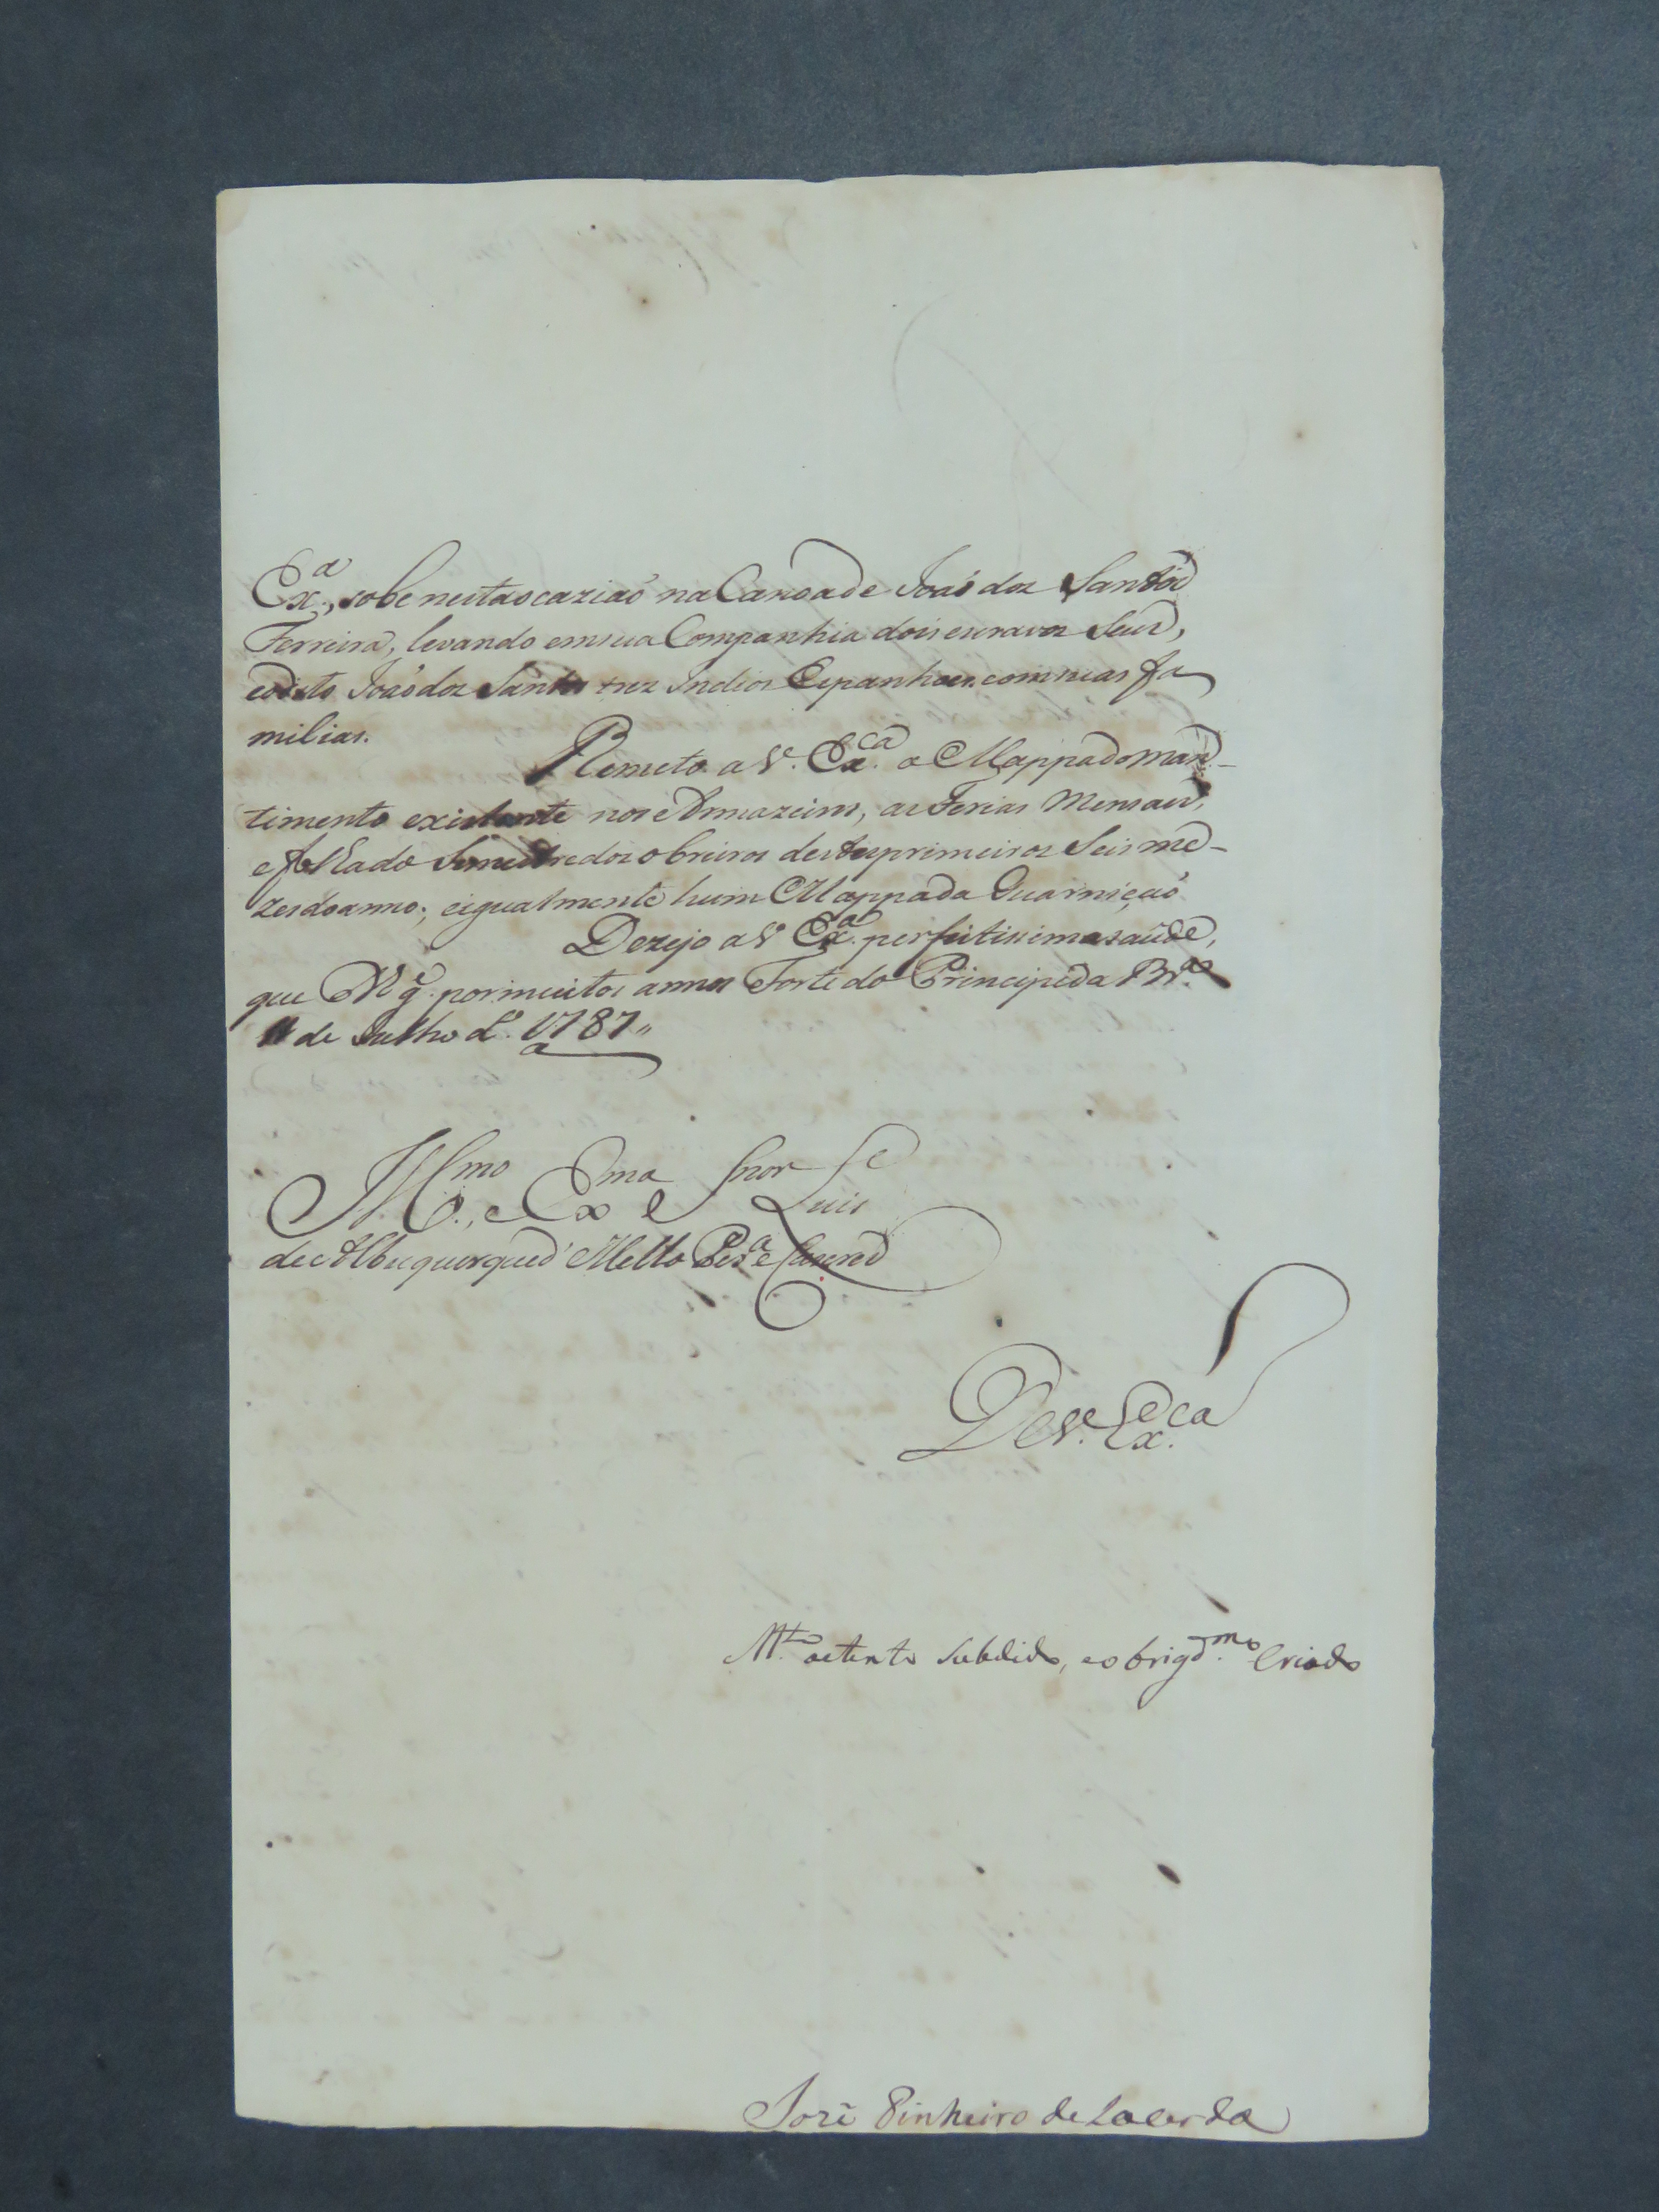 Ex.ª, sobe nesta ocazião na Canoa de João dos Santos
Ferreira, levando em sua Companhia dois escravos Seus,
e o dito João dos Santos tres Indios Espanhoes com suas fa
milias.
Remeto a V. Ex.cª o Mappa do man-
timento existente nos Armazéns, as Ferias Mensaes,
e Semestre dos obreiros destes primeiros Seis me-
zes do anno; e igualmente hum Mappa da Guarnição.
Dezejo a V.e Ex.ª perfeitissima saúde,
que D.s g.e por muitos annos Forte do Principe da Br.ª
11 de Julho d.e 1787,,
Ill.mo, e Ex.mo Snor Luis
de Albuquerque d' Mello Per.ª e Caseres
De V. Ex.cª
M.to atento Subdido, e obrigd.mo Criado
José Pinheiro de Lacerda